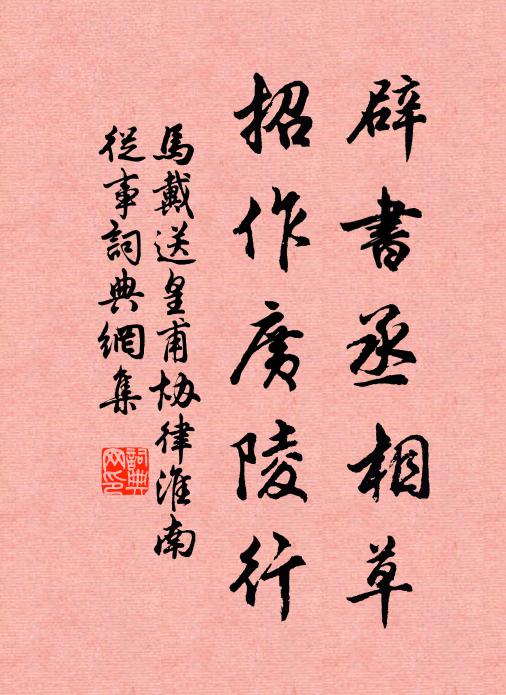 辟書丞相草
招作廣陵行
馬戴送皇甫協律淮南
從事詞典網集
詞典網印